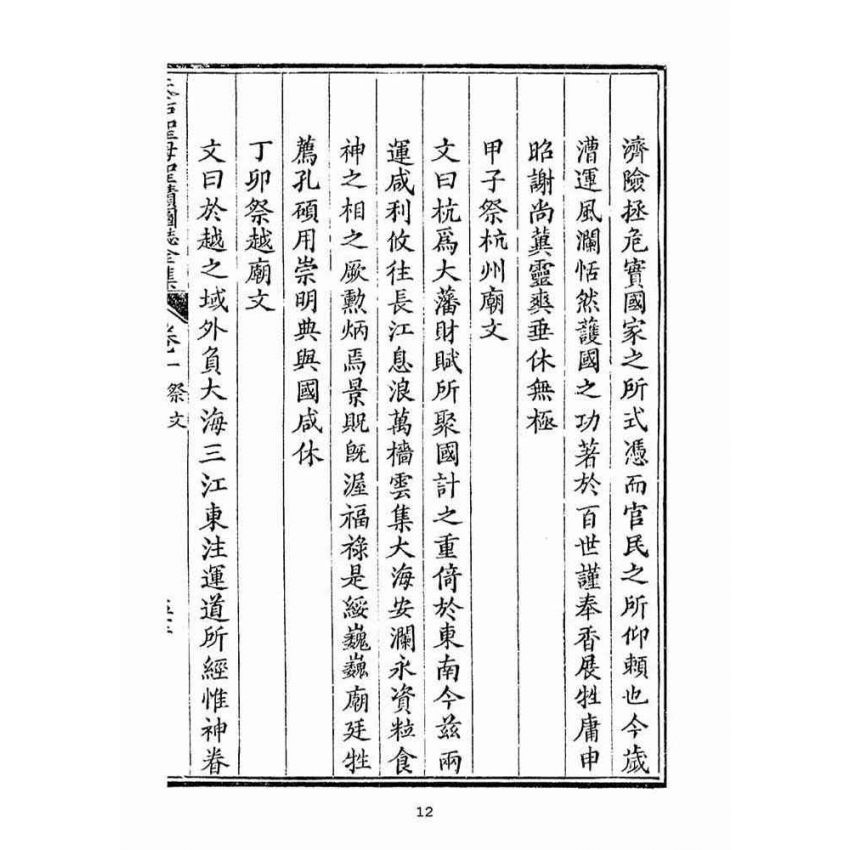 濟險拯危實國家之所式憑而官民之所仰賴也今歲
漕運風瀾恬然護國之功著於百世謹奉香展牲庸申
昭謝尚冀靈爽垂休無極
甲子祭杭州廟文
文曰杭爲大藩財賦所聚國計之重倚於東南今茲兩
運咸利攸往長江息浪萬檣雲集大海安瀾永資粒食
神之相之厥勲炳焉景貺既渥福祿是綏巍巍廟廷牲
薦孔碩用崇明典與國咸休
丁卯祭越廟文
文曰於越之域外負大海三江東注運道所經惟神眷
聖母聖蹟圖誌全集 卷一 祭文
12